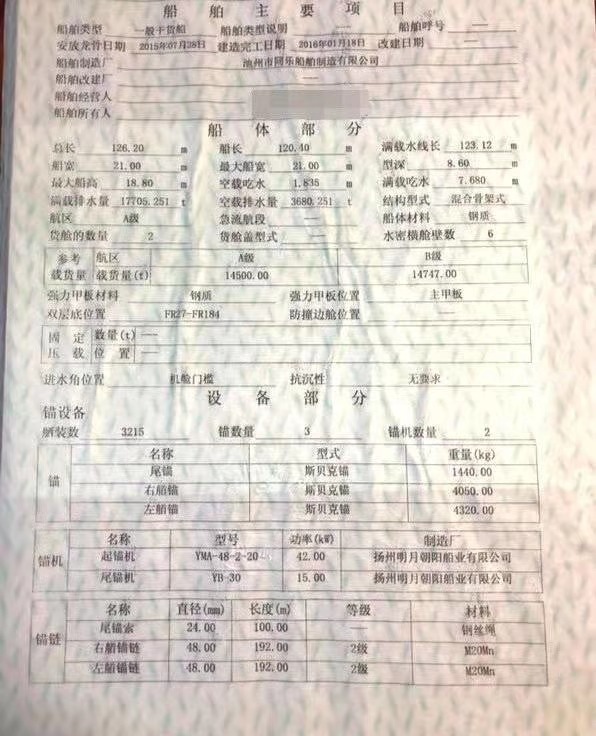 船舶主要项目
船舶类型 一般干货船 船舶类型说明 —— 船舶呼号 ——
安放龙骨日期 2015年07月28日 建造完工日期 2016年01月18日 改建日期 ——
船舶制造厂 池州市同乐船舶制造有限公司
船舶改建厂 ——
船舶经营人
船舶所有人
船体部分
总长 126.20 m 船长 120.40 m 满载水线长 123.12 m
船宽 21.00 m 最大船宽 21.00 m 型深 8.60 m
最大船高 18.80 m 空载吃水 1.835 m 满载吃水 7.680 m
满载排水量 17705.251 t 空载排水量 3680.251 t 结构型式 混合骨架式
航区 A级 急流航段 —— 船体材料 钢质
货舱的数量 2 货舱盖型式 —— 水密横舱壁数 6
参考载货量 航区 A级 B级
载货量(t) 14500.00 14747.00
强力甲板材料 钢质 强力甲板位置 主甲板
双层底位置 FR27-FR184 防撞边舱位置
固定压载 数量(t) ——
位置 ——
进水角位置 机舱门槛 抗沉性 无要求
设备部分
锚设备
舾装数 3215 锚数量 3 锚机数量 2
锚 名称 型式 重量(kg)
尾锚 斯贝克锚 1440.00
右艏锚 斯贝克锚 4050.00
左艏锚 斯贝克锚 4320.00
锚机 名称 型号 功率(kW) 制造厂
起锚机 YMA-48-2-20 42.00 扬州明月朝阳船业有限公司
尾锚机 YB-30 15.00 扬州明月朝阳船业有限公司
锚链 名称 直径(mm) 长度(m) 等级 材料
尾锚索 24.00 100.00 —— 钢丝绳
右艏锚链 48.00 192.00 2级 M20Mn
左艏锚链 48.00 192.00 2级 M20Mn